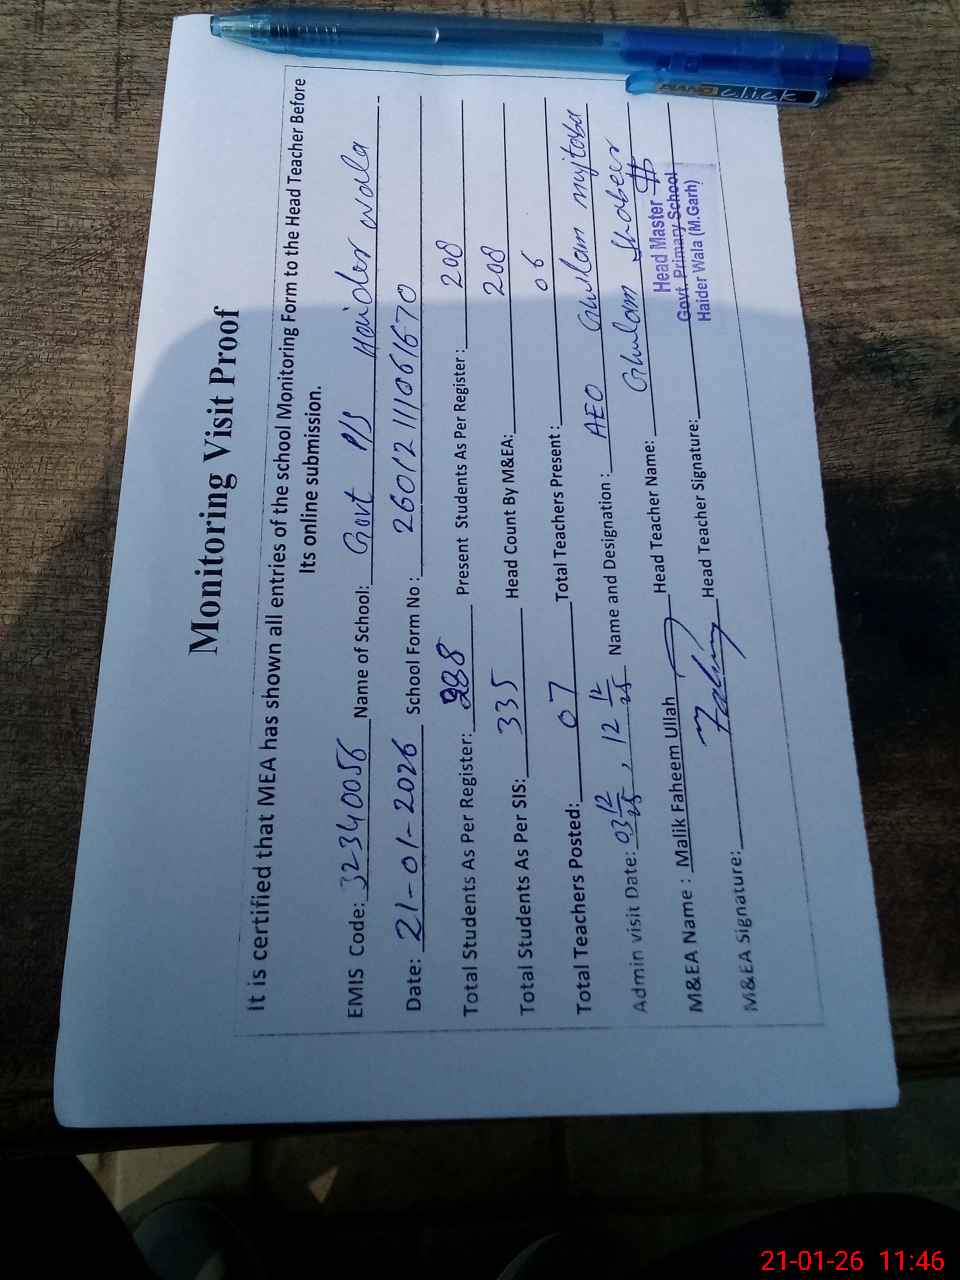 Monitoring Visit Proof
It is certified that MEA has shown all entries of the school Monitoring Form to the Head Teacher Before
Its online submission.
EMIS Code: 32340056 Name of School: Govt P/S Haider wala
Date: 21-01-2026 School Form No: 26012111061670
Total Students As Per Register: 288 Present Students As Per Register: 208
Total Students As Per SIS: 335 Head Count By M&EA: 208
Total Teachers Posted: 07 Total Teachers Present: 06
Admin visit Date: 03/12/25, 12 12/25 Name and Designation: AEO Ghulam mujtaba
M&EA Name: Malik Faheem Ullah Head Teacher Name: Ghulam Shabeer
M&EA Signature: Fahim Head Teacher Signature:
Head Master
Govt. Primary School
Haider Wala (M.Garh)
PIANO click
21-01-26 11:46